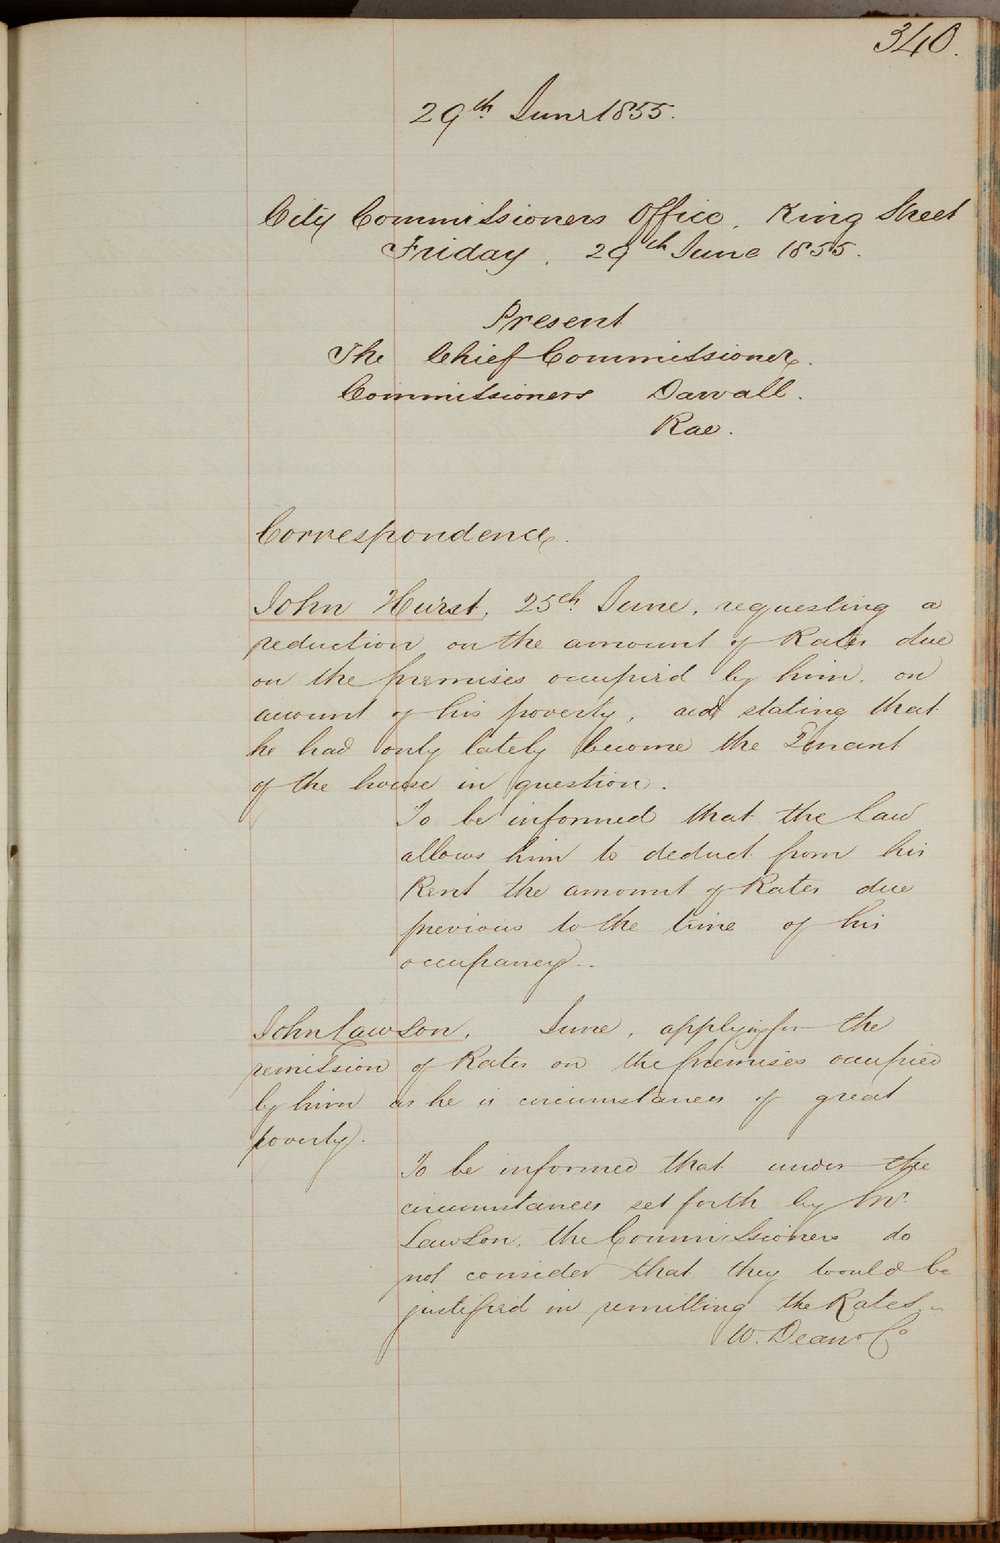 340.
29th June 1855.
City Commissioners Office, King Street
Friday, 29th June 1855.
Present
The Chief Commissioner.
Commissioners Darvall.
Rae.
Correspondence.
John Hurst, 25th June, requesting a
reduction on the amount of Rates due
on the premises occupied by him, on
account of his poverty, and stating that
he had only lately become the Tenant
of the house in question.
To be informed that the law
allows him to deduct from his
Rent the amount of Rates due
previous to the time of his
occupancy..
John Lawson, June, applying for the
remission of Rates on the premises occupied
by him as he is circumstances of great
poverty.
To be informed that under the
circumstances set forth by Mr.
Lawson, the Commissioners do
not consider that they would be
justified in remitting the Rates.
W. Dean & Co